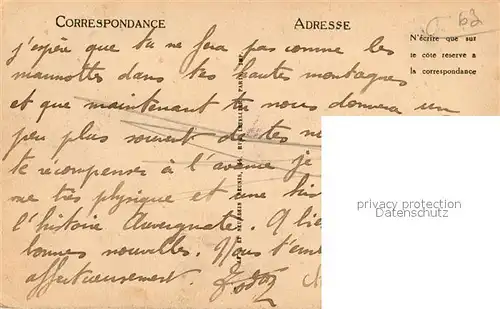 CORRESPONDANCE
ADRESSE
N'écrire que sur
le côté réservé à
la correspondance
62
j'espère que tu ne fera pas comme les
marmottes dans tes hautes montagnes
et que maintenant tu nous donnera un
peu plus souvent de tes
te récompenser à l'avenir je
me très physique et une
l'histoire Auvergnate.
bonnes nouvelles. Nous
affectueusement.
privacy protection
Datenschutz